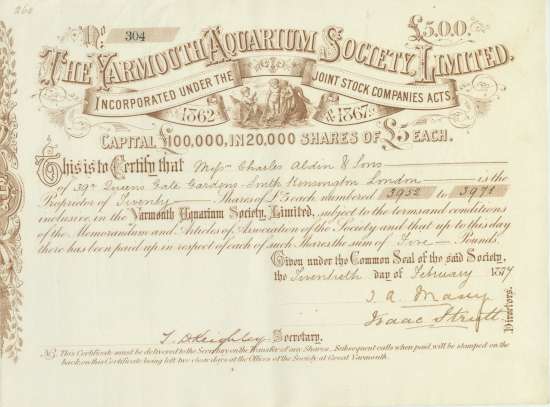 260
No. 304 £5.0.0.
THE YARMOUTH AQUARIUM SOCIETY, LIMITED.
INCORPORATED UNDER THE JOINT STOCK COMPANIES ACTS
1862 & 1867.
CAPITAL £100,000, IN 20,000 SHARES OF £5 EACH.
This is to Certify that Messrs Charles Aldin & Sons
of 39a Queens Gate Gardens South Kensington London is the
Proprietor of Twenty Shares of £5 each numbered 3952 to 3971
inclusive, in the Yarmouth Aquarium Society, Limited, subject to the terms and conditions
of the Memorandum and Articles of Association of the Society and that up to this day
there has been paid up in respect of each of such Shares the sum of Five Pounds.
Given under the Common Seal of the said Society,
the Twentieth day of February 1877
Isaac
Directors.
Secretary.
N.B. This Certificate must be delivered to the Secretary on the Transfer of any Shares. Subsequent calls when paid will be stamped on the
back on this Certificate being left two clear days at the Offices of the Society at Great Yarmouth.